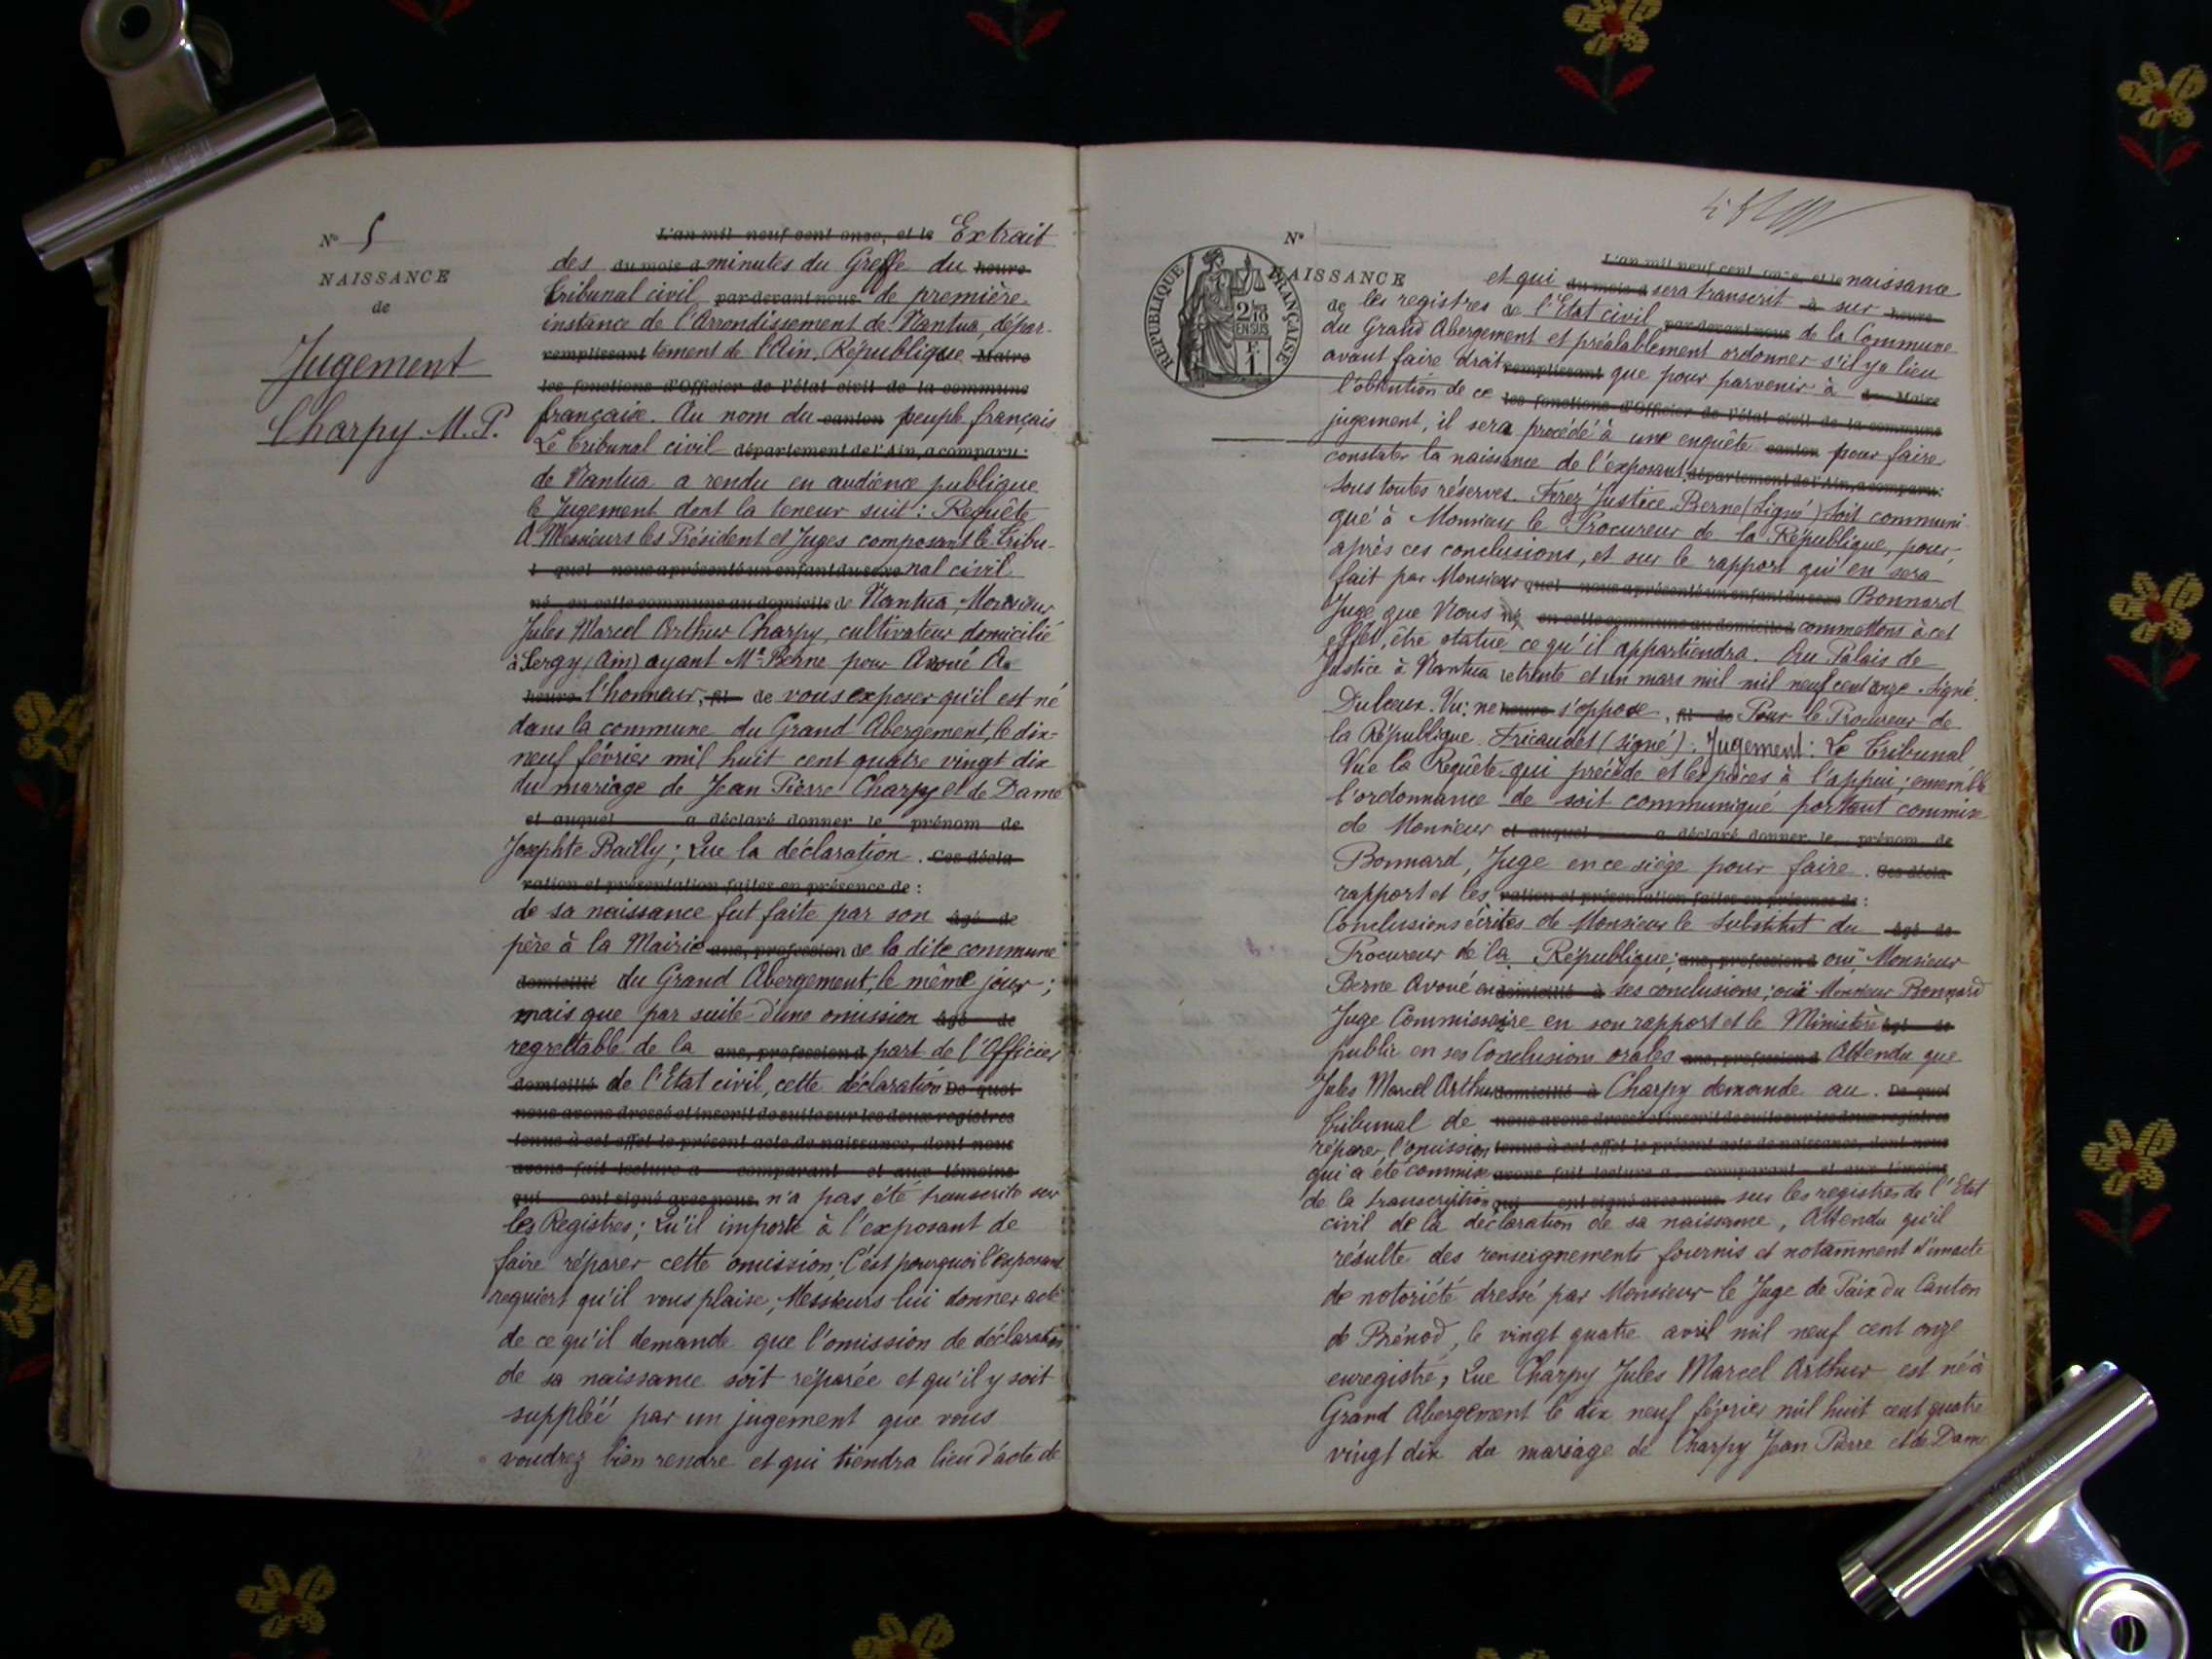 N° 5
NAISSANCE
de
Jugement
Charpy M. P.
L'an mil neuf cent onze, et le Extrait
des du mois d minutes du Greffe du heure
Tribunal civil par devant nous de première
instance de l'Arrondissement de Nantua, dépar-
remplissant tement de l'Ain, République Maire
les fonctions d'Officier de l'état civil de la commune
française. Au nom du canton peuple français
Le Tribunal civil département de l'Ain, a comparu:
de Nantua a rendu en audience publique
le Jugement dont la teneur suit: Requête
A Messieurs les Président et Juges composant le Tribu-
l quel nous a présenté un enfant du sexe nal civil
né en cette commune au domicile de Nantua, Monsieur
Jules Marcel Arthur Charpy, cultivateur domicilié
à Sergy (Ain) ayant Me Berne pour Avoué A
heure l'honneur, fil de vous exposer qu'il est né
dans la commune du Grand Abergement, le dix-
neuf février mil huit cent quatre vingt dix
du mariage de Jean Pierre Charpy et de Dame
et auquel a déclaré donner le prénom de
Josephte Bailly; Que la déclaration . Ces décla-
ration et présentation faites en présence de :
de sa naissance fut faite par son âgé de
père à la Mairie ans, profession de la dite commune
domicilié du Grand Abergement, le même jour;
mais que par suite d'une omission âgé de
regrettable de la ans, profession d part de l'Officier
domicilié de l'Etat civil, cette déclaration De quoi
nous avons dressé et inscrit de suite sur les deux registres
tenus à cet effet le présent acte de naissance, dont nous
avons fait lecture a comparant et aux témoins
qui ont signé avec nous. n'a pas été transcrite sur
les Registres; Qu'il importe à l'exposant de
faire réparer cette omission; C'est pourquoi l'exposant
requiert qu'il vous plaise, Messieurs lui donner acte
de ce qu'il demande que l'omission de déclaration
de sa naissance soit réparée et qu'il y soit
suppléé par un jugement que vous
voudrez bien rendre et qui tiendra lieu d'acte de
N°
NAISSANCE
de
RÉPUBLIQUE FRANÇAISE
2/10
EN SUS
L'an mil neuf cent onze, et le naissance
et qui du mois d sera transcrit à sur heure
les registres de l'Etat civil par devant nous de la Commune
du Grand Abergement et préalablement ordonner s'il y a lieu
avant faire droit remplissant que pour parvenir à Maire
l'obtention de ce les fonctions d'Officier de l'état civil de la commune
jugement, il sera procédé à une enquête canton pour faire
constater la naissance de l'exposant département de l'Ain, a comparu:
Sous toutes réserves. Ferez Justice. Berne (Signé) Soit communi
qué à Monsieur le Procureur de la République, pour
après ces conclusions, et sur le rapport qui en sera
fait par Monsieur quel nous a présenté un enfant du sexe Bonnard
Juge que Nous né en cette commune au domicile d commettons à cet
effet, être statué ce qu'il appartiendra. Au Palais de
Justice à Nantua le trente et un mars mil mil neuf cent onze. Signé
Vu: ne heure s'oppose, fil de Pour le Procureur de
la République. Fricaudet (signé). Jugement: Le Tribunal
Vue la Requête qui précède et les pièces à l'appui; ensemble
l'ordonnance de soit communiqué portant commise
de Monsieur et auquel a déclaré donner le prénom de
Bonnard, Juge en ce siège pour faire . Ces décla-
rapport et les ration et présentation faites en présence de :
Conclusions écrites de Monsieur le Substitut du âgé de
Procureur de la République; ans, profession d ouï Monsieur
Berne Avoué en domicilié à ses conclusions; ouï Monsieur Bonnard
Juge Commissaire en son rapport et le Ministère âgé de
public en ses Conclusions orales ans, profession d Attendu que
Jules Marcel Arthur domicilié à Charpy demande au . De quoi
Tribunal de nous avons dressé et inscrit de suite sur les deux registres
réparer l'omission tenus à cet effet le présent acte de naissance, dont nous
qui a été commise avons fait lecture a comparant et aux témoins
de la transcription qui ont signé avec nous. sur les registres de l'Etat
civil de la déclaration de sa naissance, Attendu qu'il
résulte des renseignements fournis et notamment d'un acte
de notoriété dressé par Monsieur le Juge de Paix du Canton
de Brénod, le vingt quatre avril mil neuf cent onze
enregistré; Que Charpy Jules Marcel Arthur est né à
Grand Abergement le dix neuf février mil huit cent quatre
vingt dix du mariage de Charpy Jean Pierre et de Dame